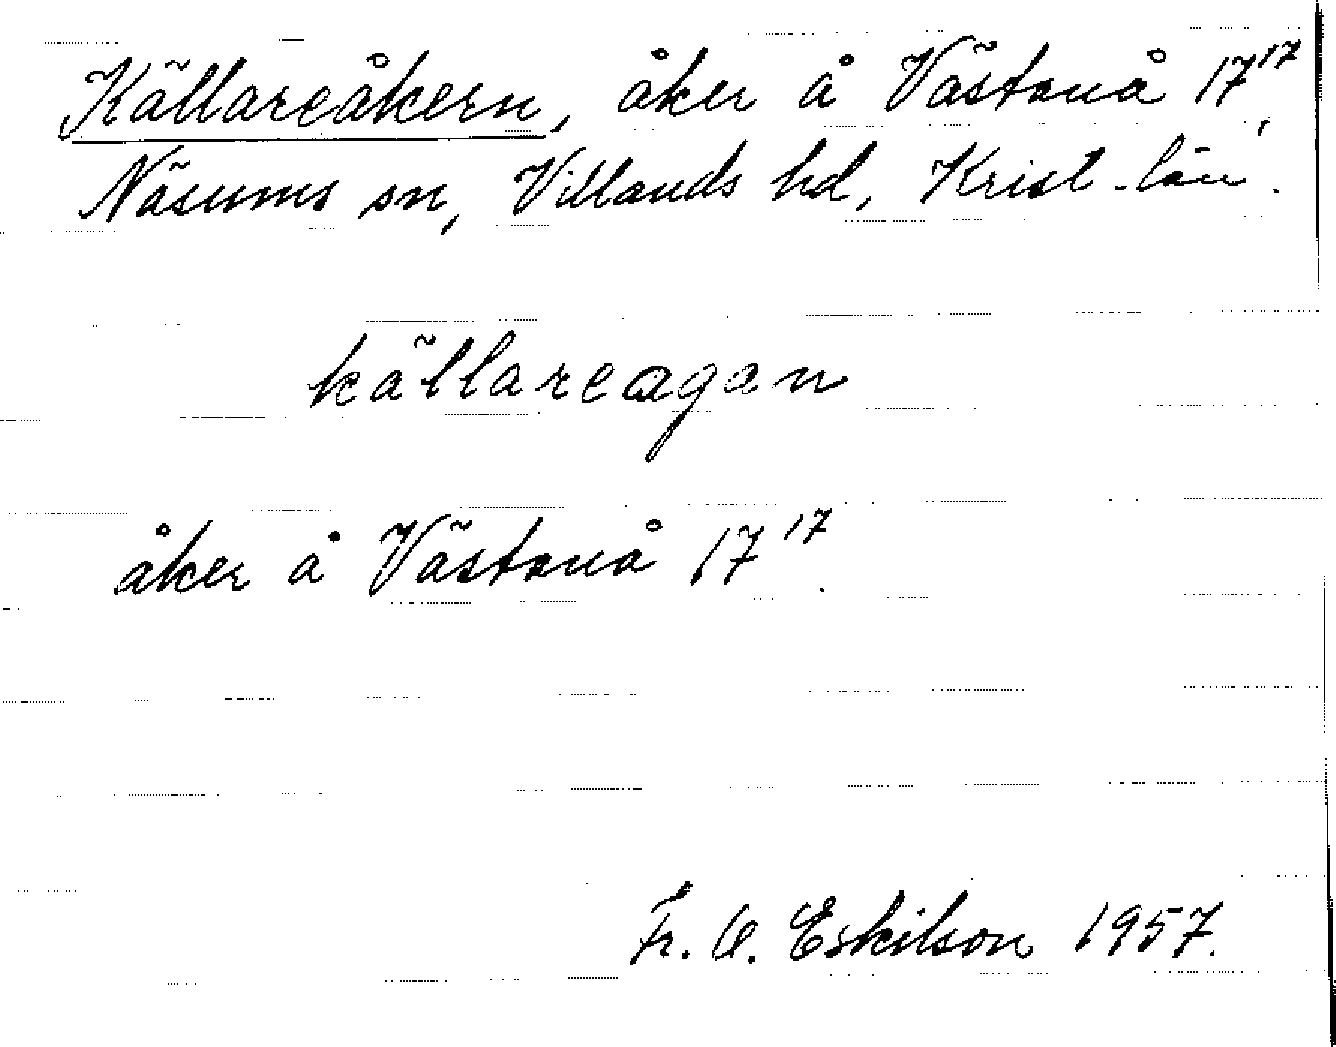 Källareåkern, åker å Västanå 17¹⁷,
Näsums sn, Villands hd, Krist. län.
källareagan
åker å Västanå 17¹⁷.
Fr. O. Eskilson 1957.